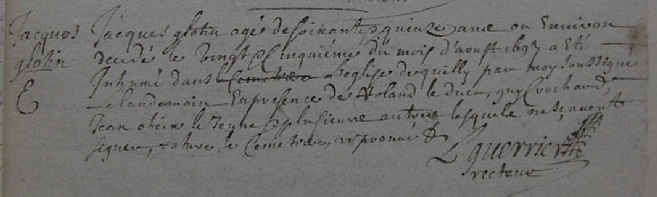 Jacques
glotin
E
Jacques glotin agé de soixante & quinze ans ou Environ
decedé le vingt & Cinquiéme du mois d'aoust 1697 a Eté
Inhumé dans Cemetiere l'eglise de quilly par moy soussigné
le landemain En presence de Roland le duc, guy Crochard,
Jean ohéix le jeune & plusieurs autres lesquels ne sçavent
signer, raturé le Cemetiere, approuvé &
L guerrier
recteur